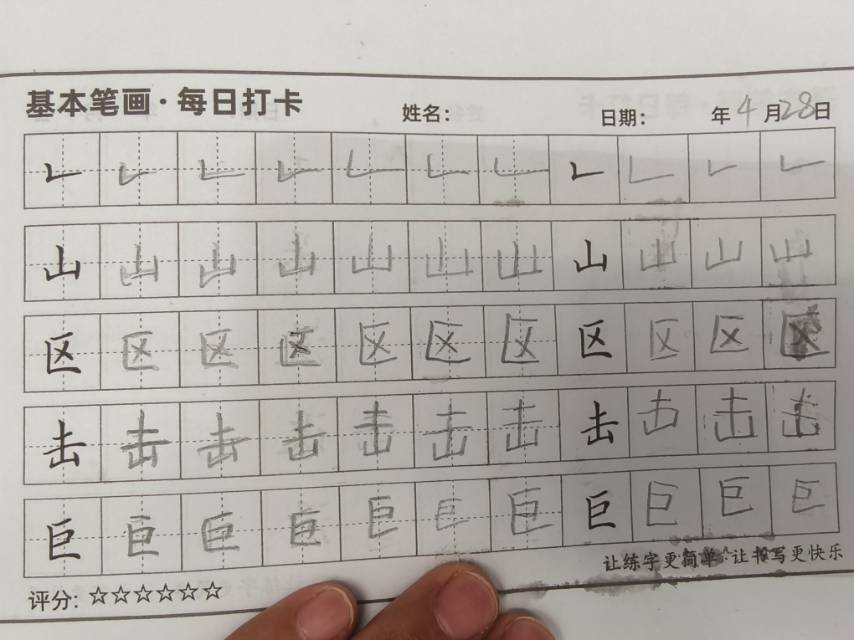 基本笔画·每日打卡 姓名： 日期： 年4月28日
𠃊 𠃊 𠃊 𠃊 𠃊 𠃊 𠃊 𠃊 𠃊 𠃊 𠃊
山 山 山 山 山 山 山 山 山 山 山
区 区 区 区 区 区 区 区 区 区 区
击 击 击 击 击 击 击 击 击 击 击
巨 巨 巨 巨 巨 巨 巨 巨 巨 巨 巨
让练字更简单 让书写更快乐
评分：☆☆☆☆☆☆